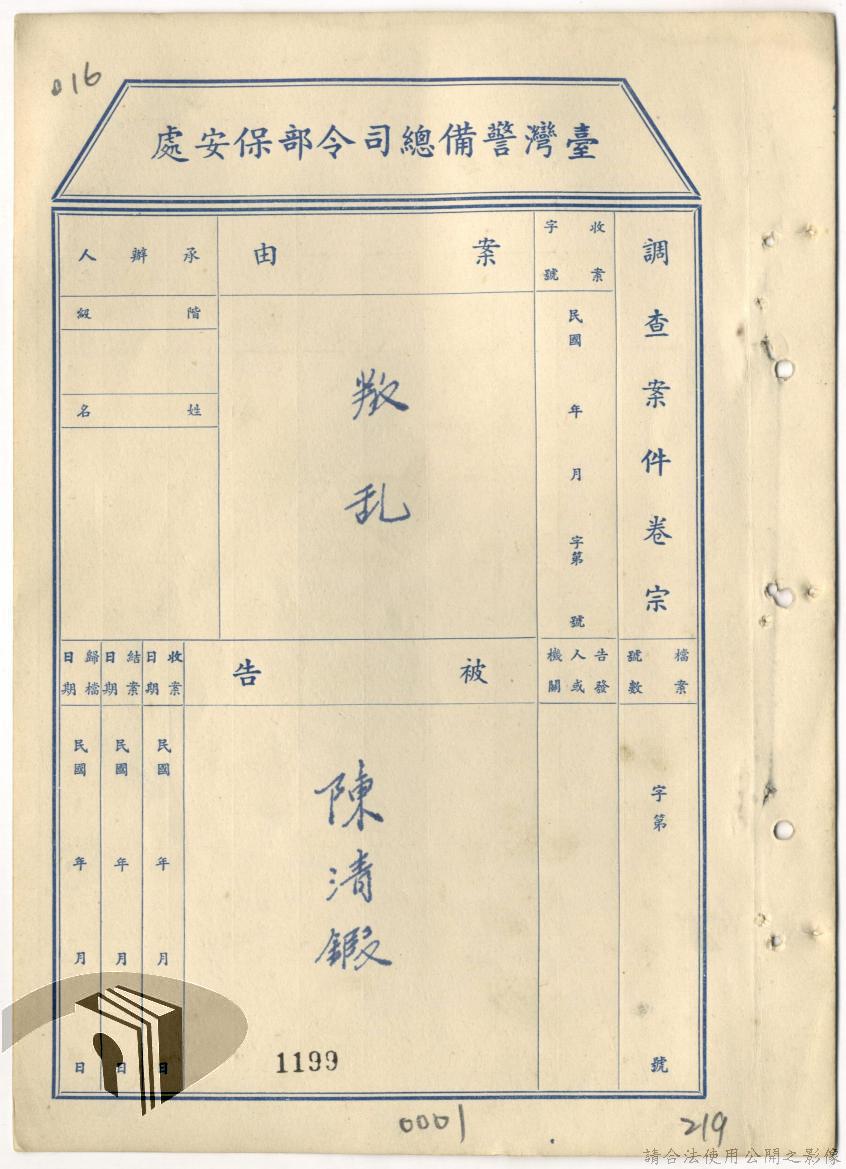 016
臺灣警備總司令部保安處
調查案件卷宗
收案
字號
民國 年 月 字第 號
案由
叛乱
承辦人
階級
姓名
檔案
號數
字第 號
告發
人或
機關
被告
陳清鍜
收案
日期
民國 年 月 日
結案
日期
民國 年 月 日
歸檔
日期
民國 年 月 日
1199
0001
219
請合法使用公開之影像